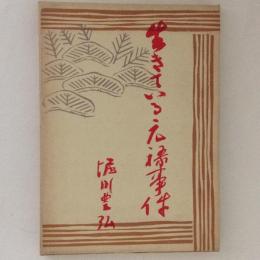 生きている元禄事件
堀川豊弘